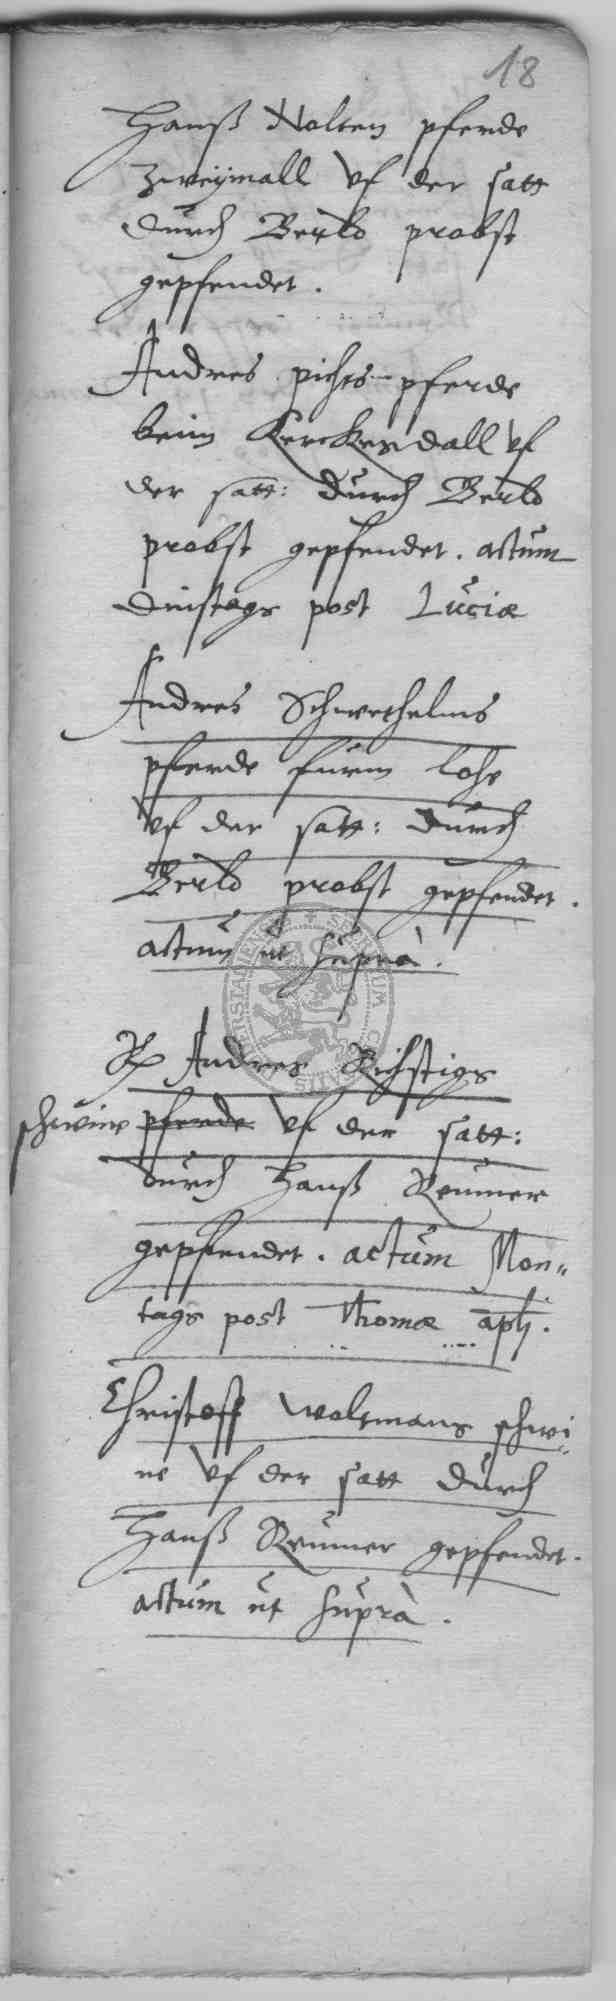 18
Hanß Nolten pferde
zweÿmall vf der satt
durch Berld probst
gepfendet.
Andres pichts pferde
beim Kerckendall vf
der satt: durch Berld
probst gepfendet. actum
dinstags post Luciæ
Andres Schwethelms
pferde fürm lohe
vf der satt: durch
Berld probst gepfendet.
actum ut suprà.
Rp Andres Richstigs
schwine pferde vf der satt:
durch Hanß Reumer
gepfendet. actum Mon„
tags post Thomæ apli.
Christoff Woltmans schwi„
ne vf der satt durch
Hanß Reumer gepfendet.
actum ut suprà.